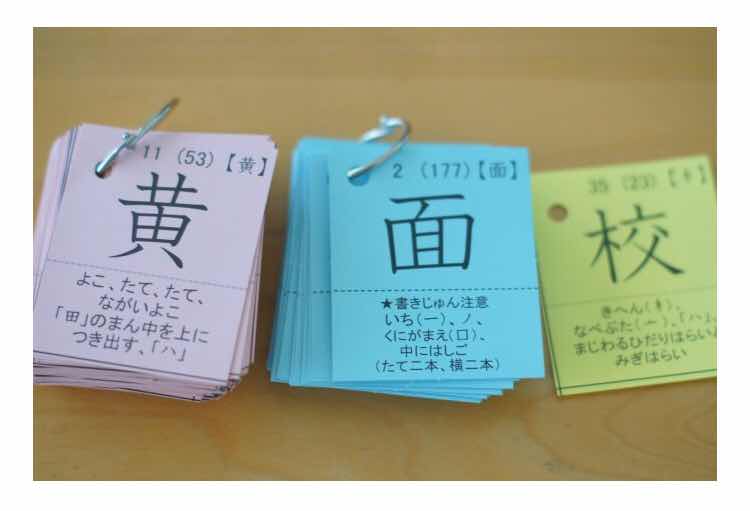 11 (53)【黄】
黄
よこ、たて、たて、
ながいよこ
「田」のまん中を上に
つき出す、「ハ」
2 (177)【面】
面
★書きじゅん注意
いち(一)、ノ、
くにがまえ(口)、
中にはしご
(たて二本、横二本)
35 (23)【
校
きへん(木)、
なべぶた(亠)、「ハ」、
まじわるひだりはらい、
みぎはらい